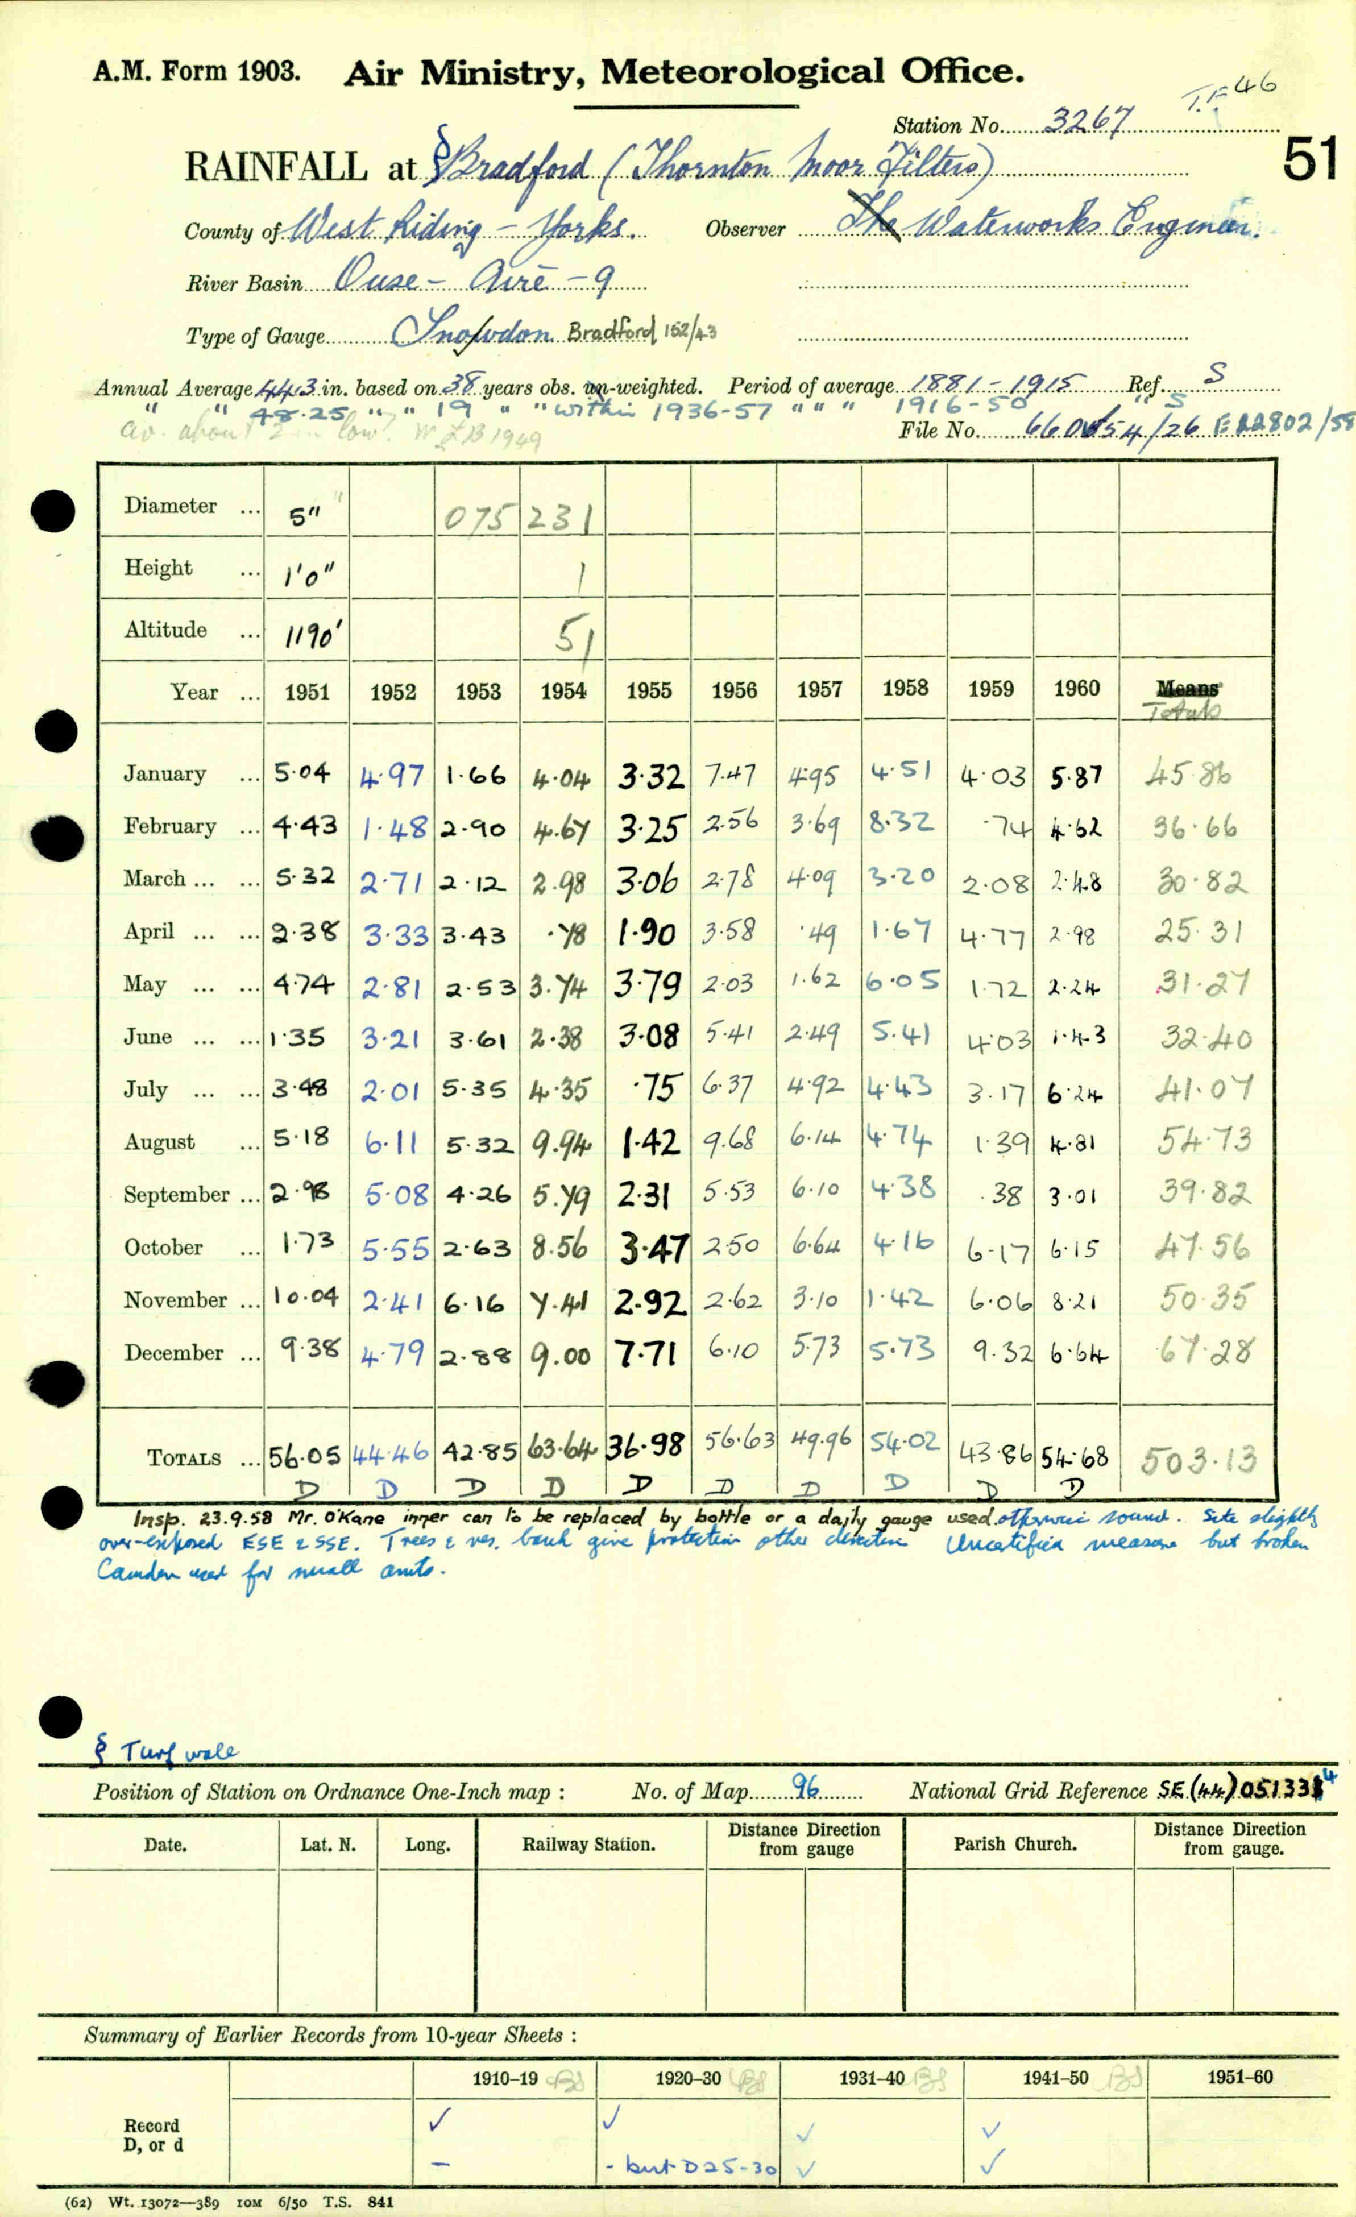 A.M. Form 1903. Air Ministry, Meteorological Office.
T.F. 46
Station No. 3267
51
RAINFALL at § Bradford (Thornton Moor Filters)
County of West Riding - Yorks. Observer The Waterworks Engineer.
River Basin Ouse - Aire - 9
Type of Gauge Snowdon Bradford 152/43
Annual Average 44.3 in. based on 38 years obs. un-weighted. Period of average 1881-1915 Ref. S
" " 48.25 " " 19 " " within 1936-57 " " " 1916-50 " S
av. about 2 in low? W.L.B 1949
File No. 54/26 E 22802/58
Diameter ... 5" 075 231
Height ... 1'0" 1
Altitude ... 1190' 51
Year ... 1951 1952 1953 1954 1955 1956 1957 1958 1959 1960 Means
Totals
January ... 5.04 4.97 1.66 4.04 3.32 7.47 4.95 4.51 4.03 5.87 45.86
February ... 4.43 1.48 2.90 4.67 3.25 2.56 3.69 8.32 .74 4.62 36.66
March ... ... 5.32 2.71 2.12 2.98 3.06 2.78 4.09 3.20 2.08 2.48 30.82
April ... ... 2.38 3.33 3.43 .78 1.90 3.58 .49 1.67 4.77 2.98 25.31
May ... ... 4.74 2.81 2.53 3.74 3.79 2.03 1.62 6.05 1.72 2.24 31.27
June ... ... 1.35 3.21 3.61 2.38 3.08 5.41 2.49 5.41 4.03 1.43 32.40
July ... ... 3.48 2.01 5.35 4.35 .75 6.37 4.92 4.43 3.17 6.24 41.07
August ... 5.18 6.11 5.32 9.94 1.42 9.68 6.14 4.74 1.39 4.81 54.73
September ... 2.98 5.08 4.26 5.79 2.31 5.53 6.10 4.38 .38 3.01 39.82
October ... 1.73 5.55 2.63 8.56 3.47 2.50 6.64 4.16 6.17 6.15 47.56
November ... 10.04 2.41 6.16 7.41 2.92 2.62 3.10 1.42 6.06 8.21 50.35
December ... 9.38 4.79 2.88 9.00 7.71 6.10 5.73 5.73 9.32 6.64 67.28
TOTALS ... 56.05 44.46 42.85 63.64 36.98 56.63 49.96 54.02 43.86 54.68 503.13
D D D D D D D D D D
Insp. 23.9.58 Mr. O'Kane inner can to be replaced by bottle or a daily gauge used. otherwise sound. Site slightly
over-exposed ESE & SSE. Trees & res. bank give protection other direction Uncertified measure but broken
Camden used for small amts.
§ Turf wall
Position of Station on Ordnance One-Inch map : No. of Map 96 National Grid Reference SE (44) 051334
Date. Lat. N. Long. Railway Station. Distance Direction from gauge Parish Church. Distance Direction from gauge.
Summary of Earlier Records from 10-year Sheets :
1910–19 BS 1920–30 BS 1931–40 BS 1941–50 BS 1951–60
Record ✓ ✓ ✓ ✓
D, or d - - but D 25-30 ✓ ✓
(62) Wt. 13072—389 10M 6/50 T.S. 841